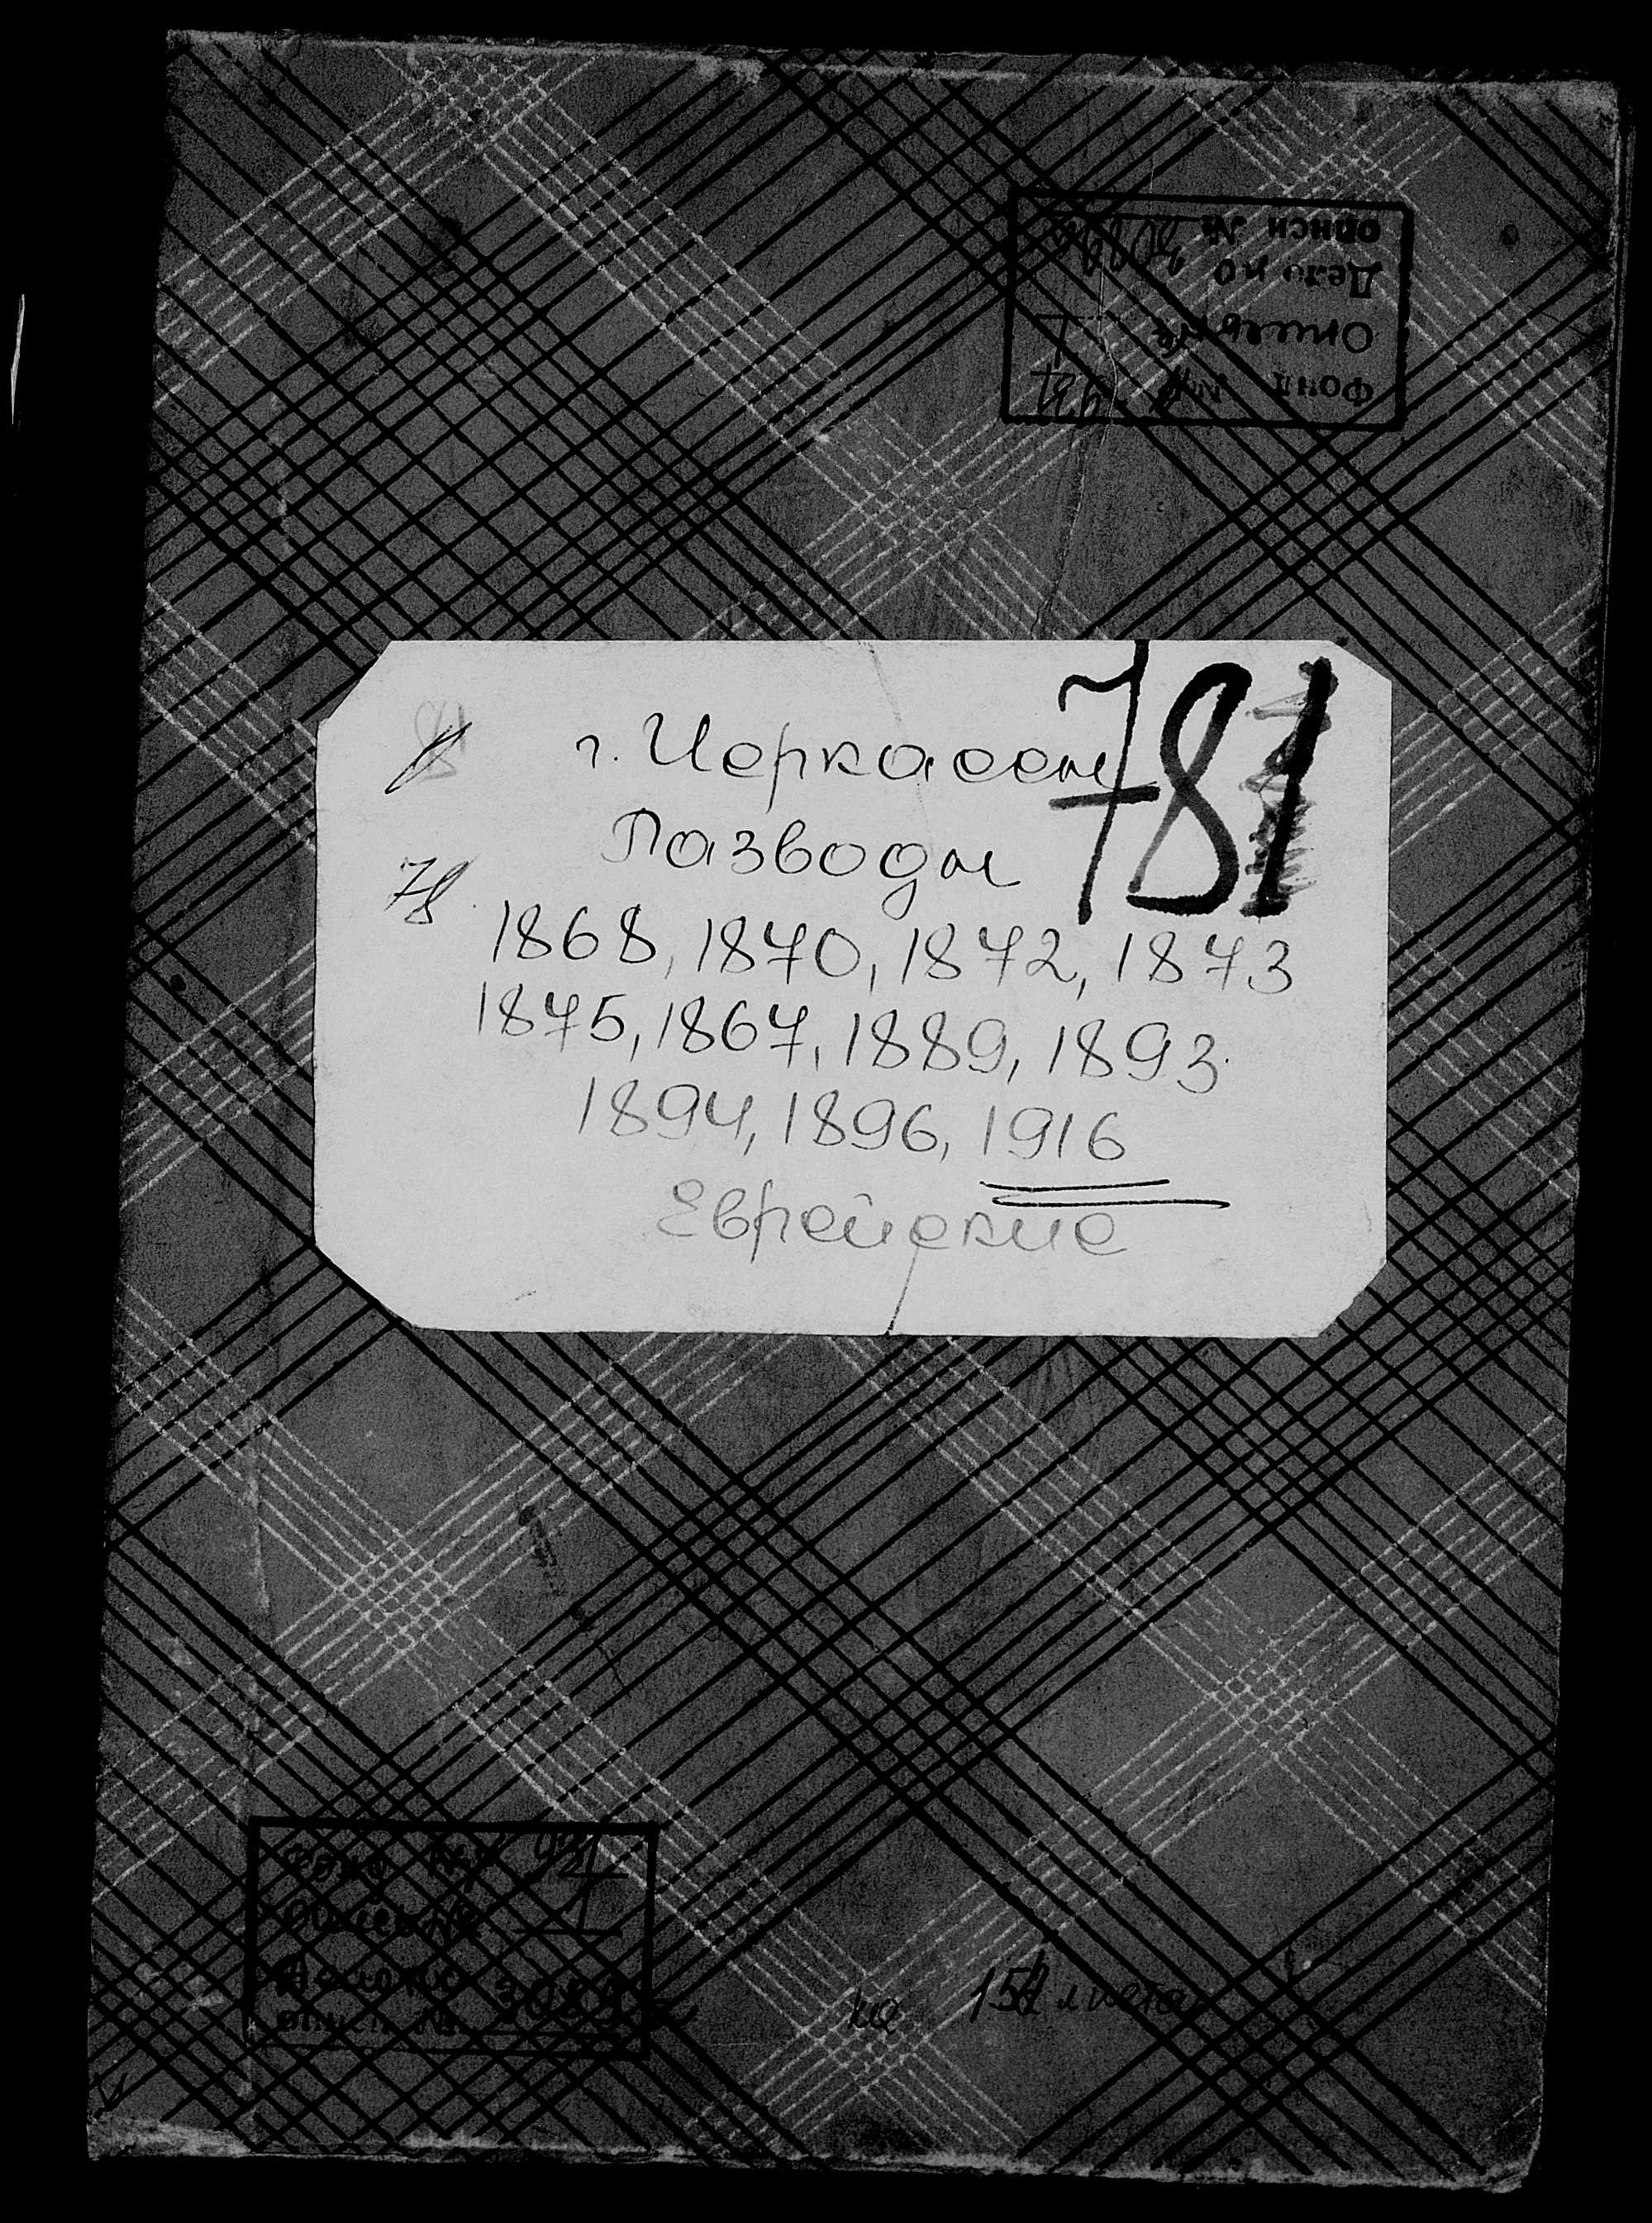 описи №
Дело по
Опись №
Фонд №
781
г. Черкассы
Разводы
78
1868, 1870, 1872, 1873
1875, 1867, 1889, 1893
1894, 1896, 1916
Еврейские
Фонд №
Опись № 1
Дело по
описи №
на листах